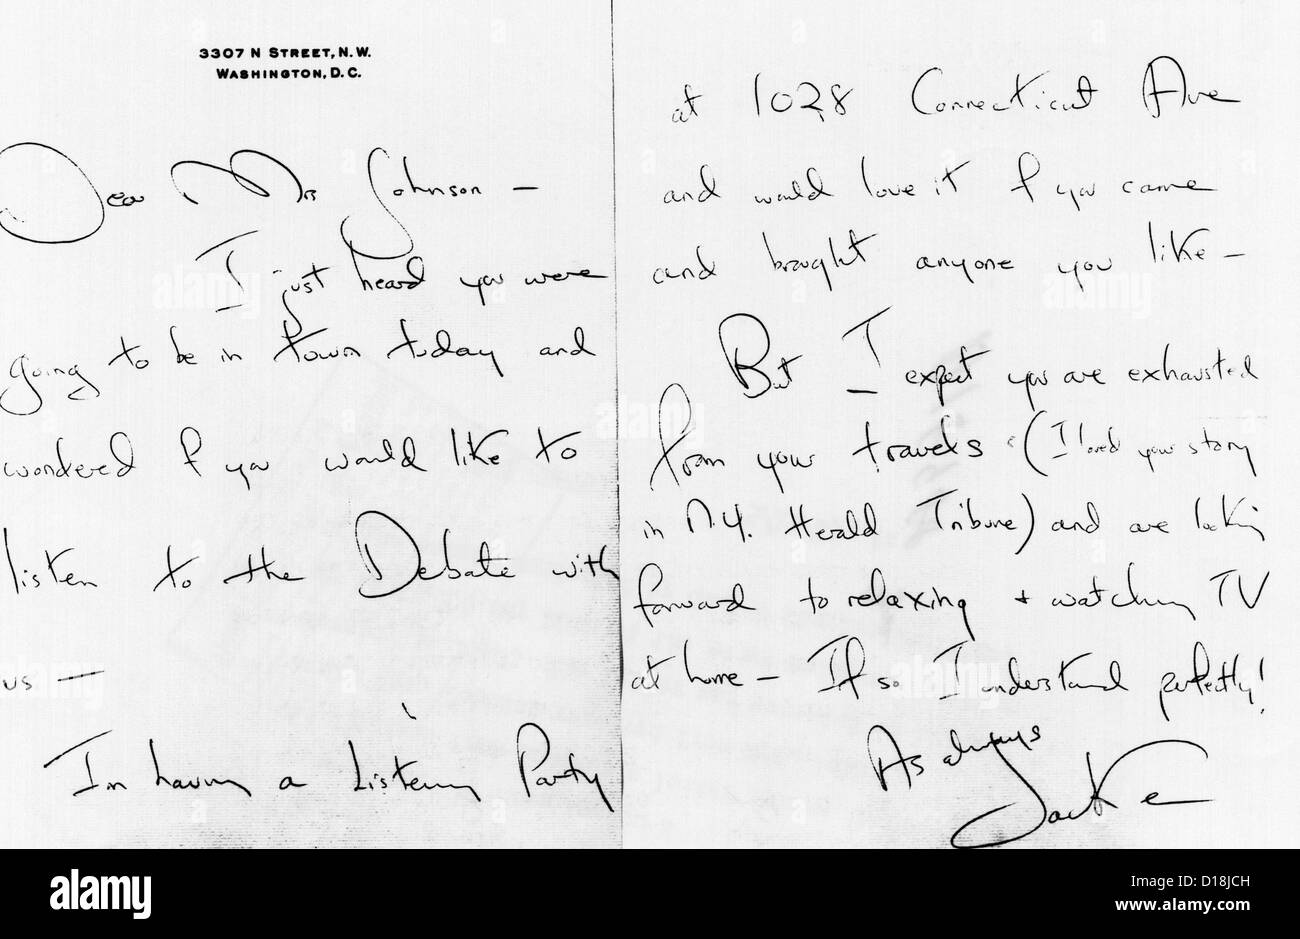 3307 N STREET, N.W.
WASHINGTON, D.C.
Dear Mrs Johnson —
I just heard you were
going to be in town today and
wondered if you would like to
listen to the Debate with
us —
I'm having a Listening Party
at 1028 Connecticut Ave
and would love it if you came
and brought anyone you like —
But I expect you are exhausted
from your travels (I loved your story
in N.Y. Herald Tribune) and are looking
forward to relaxing + watching TV
at home — If so I understand perfectly!
As always
Jackie
alamy
Image ID: D18JCH
www.alamy.com